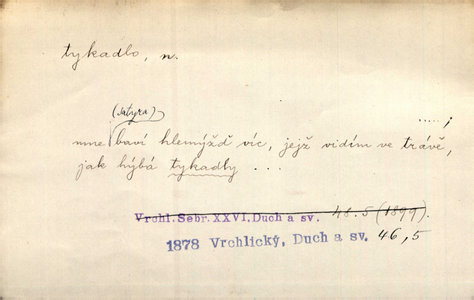 tykadlo, n.
(satyra)
.....;
mne baví hlemýžď víc, jejž vidím ve trávě,
jak hýbá tykadly ...
Vrchl. Sebr. XXVI, Duch a sv. 48.5 (1899).
1878 Vrchlický, Duch a sv. 46,5